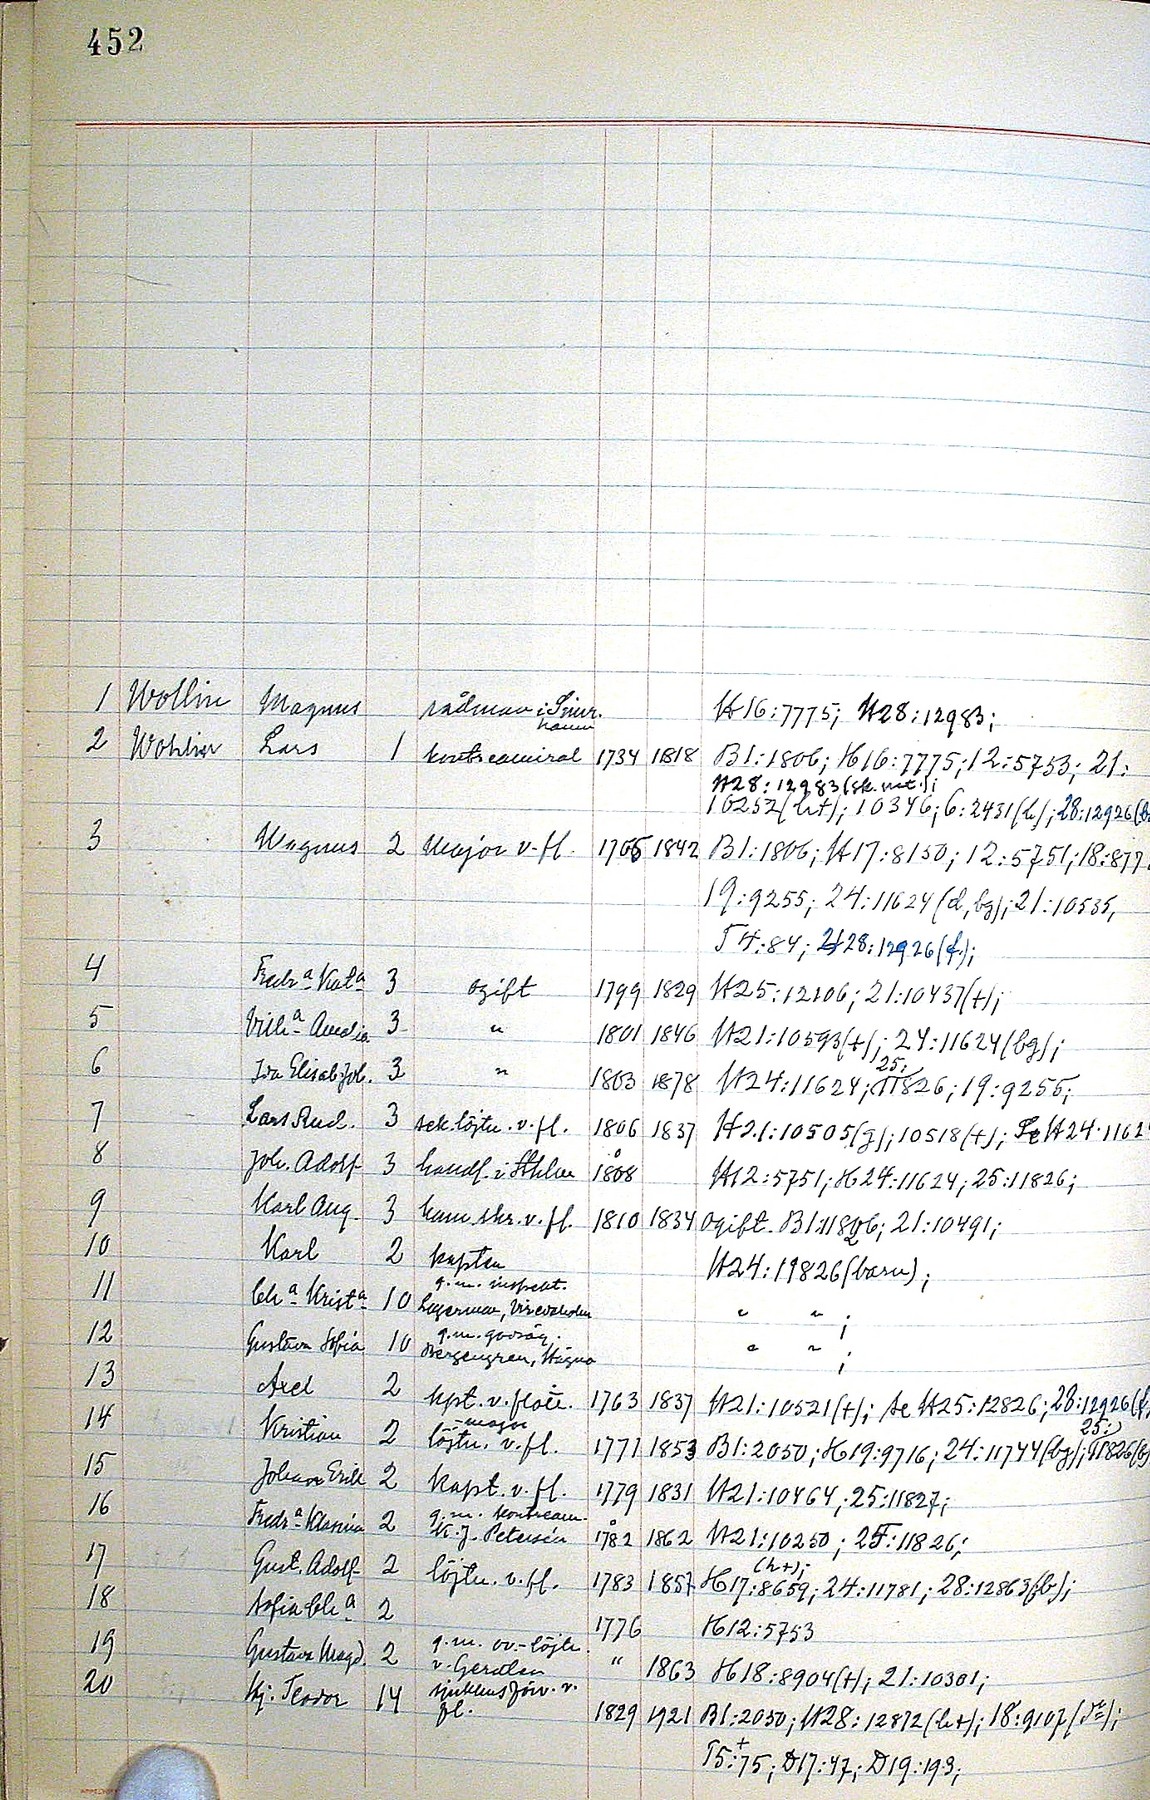 452
1 Wollin Magnus rådman i Simrhamn H16:7775; H28:12983;
2 Wohlin Lars 1 kontreamiral 1734 1818 B1:1806; H16:7775; 12:5753; 21:
H28:12983 (sk. met.);
10252 (h+); 10346; 6:2431 (h); 28:12926
3 Magnus 2 Major v. fl. 1842 B1:1806; H17:8150; 12:5751; 18:877
19:9255; 24:11624 (d, bg); 21:10535,
T4:84; H28:12926 (f.);
4 Fredr:a Kat:a 3 ogift 1799 1829 H25:12106; 21:10437 (+);
5 Vilh:a Amalia 3 " 1801 1846 H21:10593 (+); 24:11624 (bg);
6 Ida Elisab. Joh. 3 " 1803 1878 H24:11624; 25:11826; 19:9255;
7 Lars Rud. 3 sek. löjtn. v. fl. 1806 1837 H21:10505 (g); 10518 (+); Se H24:1162
8 Joh. Adolf 3 handl. i Sthlm 1808 H12:5751; H24:11624; 25:11826;
9 Karl Aug. 3 kam. skr. v. fl. 1810 1834 ogift. B1:1806; 21:10491;
10 Karl 2 kapten H24:19826 (barn);
11 Ch:a Krist:a 10 g.m. inspekt. " " ;
Lagerman,
12 Gustava Sofia 10 g.m. godsäg. " " ;
Bergengren,
13 Axel 2 kpt. v. flott. 1763 1837 H21:10521 (+); Se H25:12826; 28:12926 (f
14 Kristian 2 major
löjtn. v. fl. 1771 1853 B1:2050; H19:9716; 24:11744 (bg); 25:11826
15 Johan Erik 2 Kapt. v. fl. 1779 1831 H21:10464; 25:11827;
16 Fredr:a 2 g.m. kontream.
K. J. Petersén 1782 1862 H21:10250; 25:11826;
17 Gust. Adolf 2 löjtn. v. fl. 1783 1857 H17:8659 (h+); 24:11781; 28:12863 (b);
18 Sofia Ch:a 2 1776 H12:5753
19 Gustava Magd. 2 g.m. öv.-löjtn.
v. Gerdten " 1863 H18:8904 (+); 21:10301;
20 Hj. Teodor 14 sjukhusförv. v.
fl. 1829 1921 B1:2050; H28:12872 (h+); 18:9107
T5:75; D17:47; D19:193;